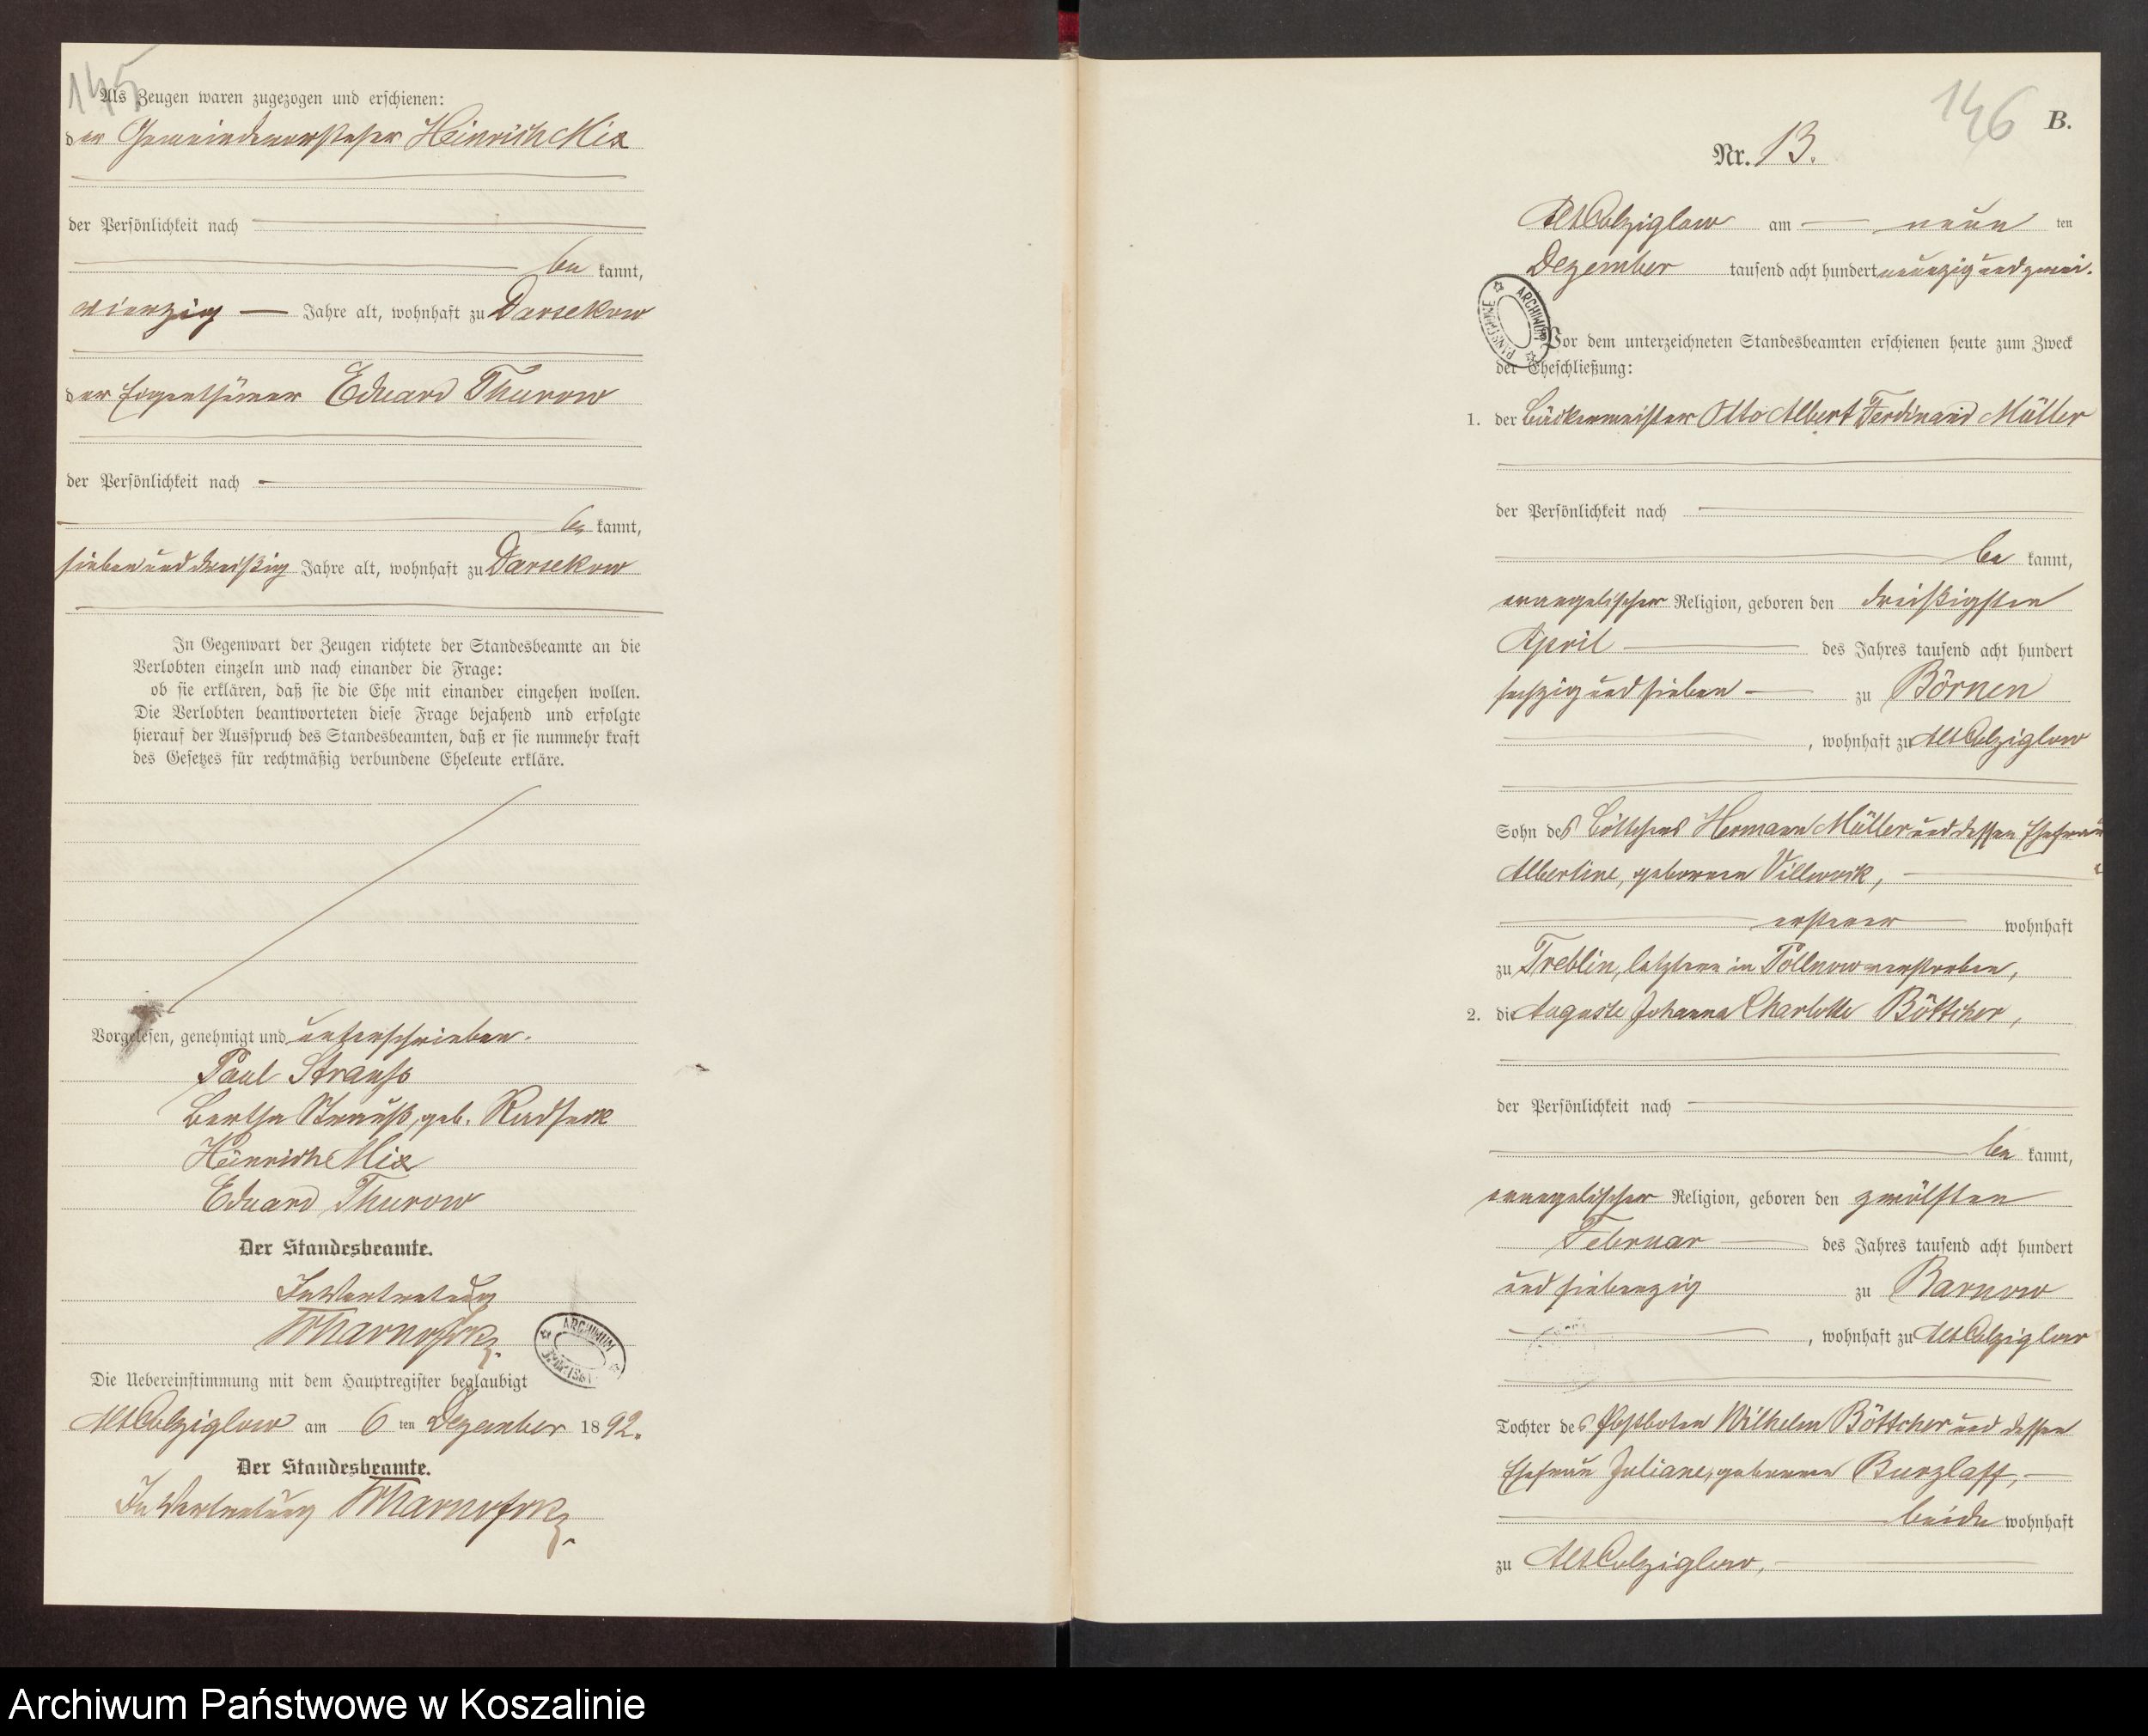 145
Als Zeugen waren zugezogen und erschienen:
der Gemeindevorsteher Heinrich Mix
der Persönlichkeit nach
be kannt,
vierzig Jahre alt, wohnhaft zu Darsekow
der Eigenthümer Eduard Thurow
der Persönlichkeit nach
be kannt,
siebenunddreißig Jahre alt, wohnhaft zu Darsekow
In Gegenwart der Zeugen richtete der Standesbeamte an die
Verlobten einzeln und nach einander die Frage:
ob sie erklären, daß sie die Ehe mit einander eingehen wollen.
Die Verlobten beantworteten diese Frage bejahend und erfolgte
hierauf der Ausspruch des Standesbeamten, daß er sie nunmehr kraft
des Gesetzes für rechtmäßig verbundene Eheleute erkläre.
Vorgelesen, genehmigt und unterschrieben.
Paul Strauß
Bertha Strauß, geb. Radserk
Heinrich Mix
Eduard Thurow
Der Standesbeamte.
In Vertretung
ARCHIWUM
Die Uebereinstimmung mit dem Hauptregister beglaubigt
Alt Colziglow am 6 ten Dezember 1892.
Der Standesbeamte.
In Vertretung
146
B.
Nr. 13.
Alt Colziglow am neun ten
Dezember tausend acht hundert neunzig und zwei.
ARCHIWUM PAŃSTWOWE
Vor dem unterzeichneten Standesbeamten erschienen heute zum Zweck
der Eheschließung:
1. der Bäckermeister Otto Albert Ferdinand Müller
der Persönlichkeit nach
be kannt,
evangelischer Religion, geboren den dreißigsten
April des Jahres tausend acht hundert
sechzig und sieben zu Börnen
, wohnhaft zu Alt Colziglow
Sohn des Böttchers Hermann Müller und dessen Ehefrau
Albertine, geborenen Villwock,
ersterer wohnhaft
zu Treblin, letztere in Pollnow verstorben,
2. die Auguste Johanna Charlotte Böttcher,
der Persönlichkeit nach
be kannt,
evangelischer Religion, geboren den zwölften
Februar des Jahres tausend acht hundert
und siebenzig zu Barnow
, wohnhaft zu Alt Colziglow
Tochter des Postboten Wilhelm Böttcher und dessen
Ehefrau Juliane, geborenen Burzlaff,
beide wohnhaft
zu Alt Colziglow,
Archiwum Państwowe w Koszalinie